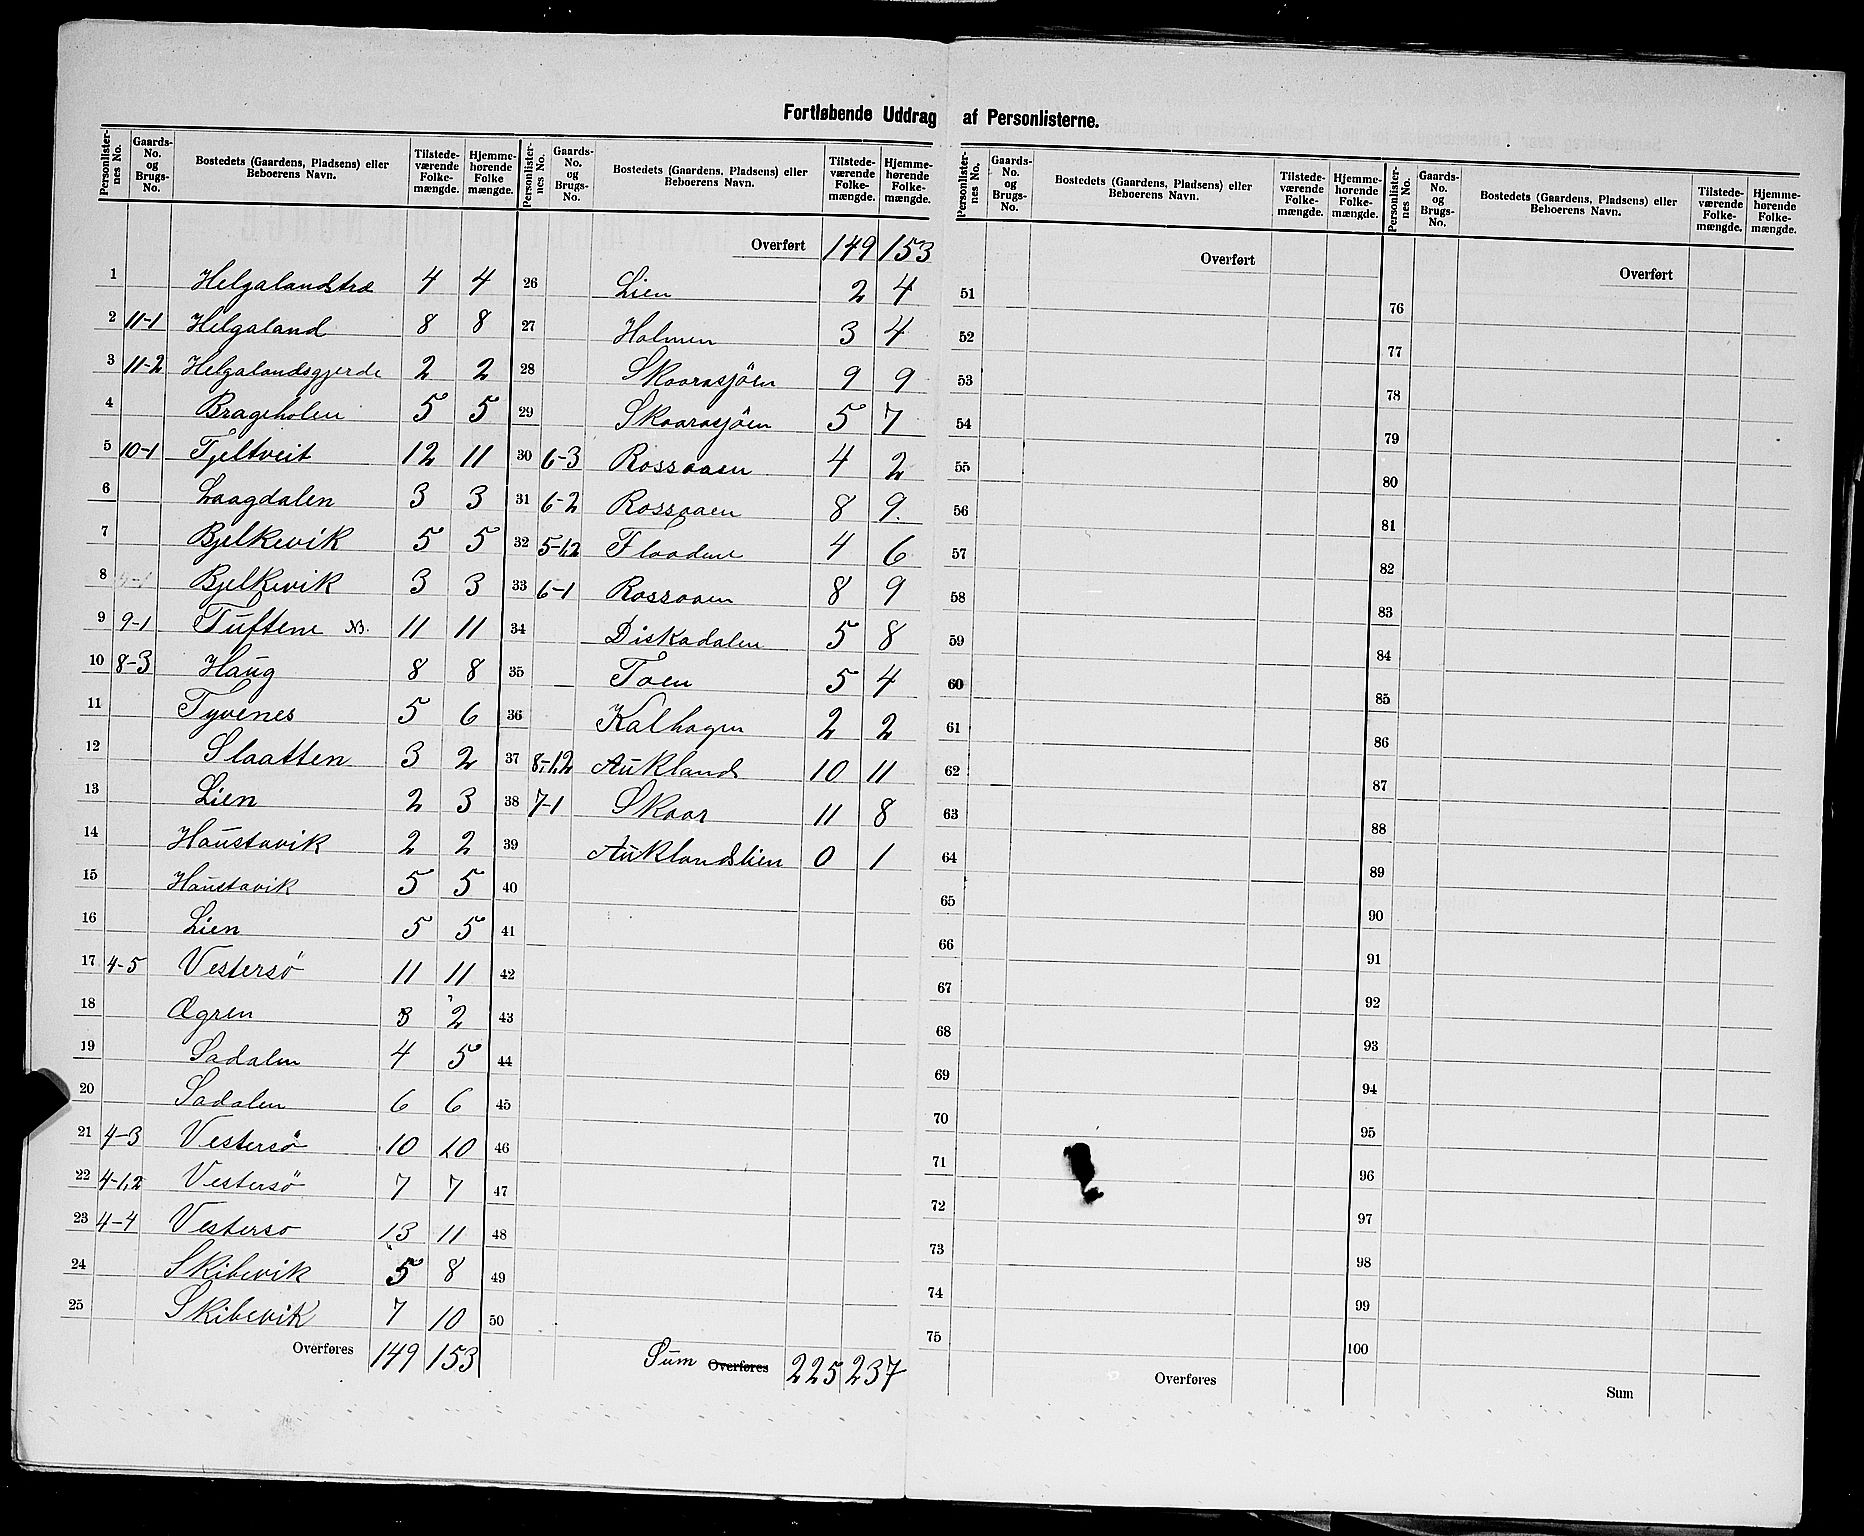 Fortløbende Uddrag af Personlisterne.
Personlisternes No. | Gaards-No. og Brugs-No. | Bostedets (Gaardens, Pladsens) eller Beboerens Navn. | Tilstedeværende Folkemængde. | Hjemmehørende Folkemængde.
1 Helgalandstræ 4 4
2 11-1 Helgaland 8 8
3 11-2 Helgalandsgjerde 2 2
4 Brageholen 5 5
5 10-1 Fjeltveit 12 11
6 Laagdalen 3 3
7 Bjelkevik 5 5
8 Bjelkevik 3 3
9 9-1 Tuftene NB. 11 11
10 8-3 Haug 8 8
11 Tyvenes 5 6
12 Slaatten 3 2
13 Lien 2 3
14 Haustavik 2 2
15 Haustavik 5 5
16 Lien 5 5
17 4-5 Vestersö 11 11
18 Ægren 3 2
19 Sadalen 4 5
20 Sadalen 6 6
21 4-3 Vestersö 10 10
22 4-1,2 Vestersö 7 7
23 4-4 Vesterso 13 11
24 Skibevik 5 8
25 Skibevik 7 10
Overføres 149 153
Personlisternes No. | Gaards-No. og Brugs-No. | Bostedets (Gaardens, Pladsens) eller Beboerens Navn. | Tilstedeværende Folkemængde. | Hjemmehørende Folkemængde.
Overført 149 153
26 Lien 2 4
27 Holmen 3 4
28 Skaarasjöen 9 9
29 Skaarasjöen 5 7
30 6-3 Rossaaen 4 2
31 6-2 Rossaaen 8 9.
32 5-1,2 Flaadene 4 6
33 6-1 Rossaaen 8 9
34 Diskadalen 5 8
35 Toen 5 4
36 Kalhagen 2 2
37 8-1,2 Aukland 10 11
38 7-1 Skaar 11 8
39 Auklandslien 0 1
40
41
42
43
44
45
46
47
48
49
50
Sum Overføres 225 237
Personlisternes No. | Gaards-No. og Brugs-No. | Bostedets (Gaardens, Pladsens) eller Beboerens Navn. | Tilstedeværende Folkemængde. | Hjemmehørende Folkemængde.
Overført
51
52
53
54
55
56
57
58
59
60
61
62
63
64
65
66
67
68
69
70
71
72
73
74
75
Overføres
Personlisternes No. | Gaards-No. og Brugs-No. | Bostedets (Gaardens, Pladsens) eller Beboerens Navn. | Tilstedeværende Folkemængde. | Hjemmehørende Folkemængde.
Overført
76
77
78
79
80
81
82
83
84
85
86
87
88
89
90
91
92
93
94
95
96
97
98
99
100
Sum